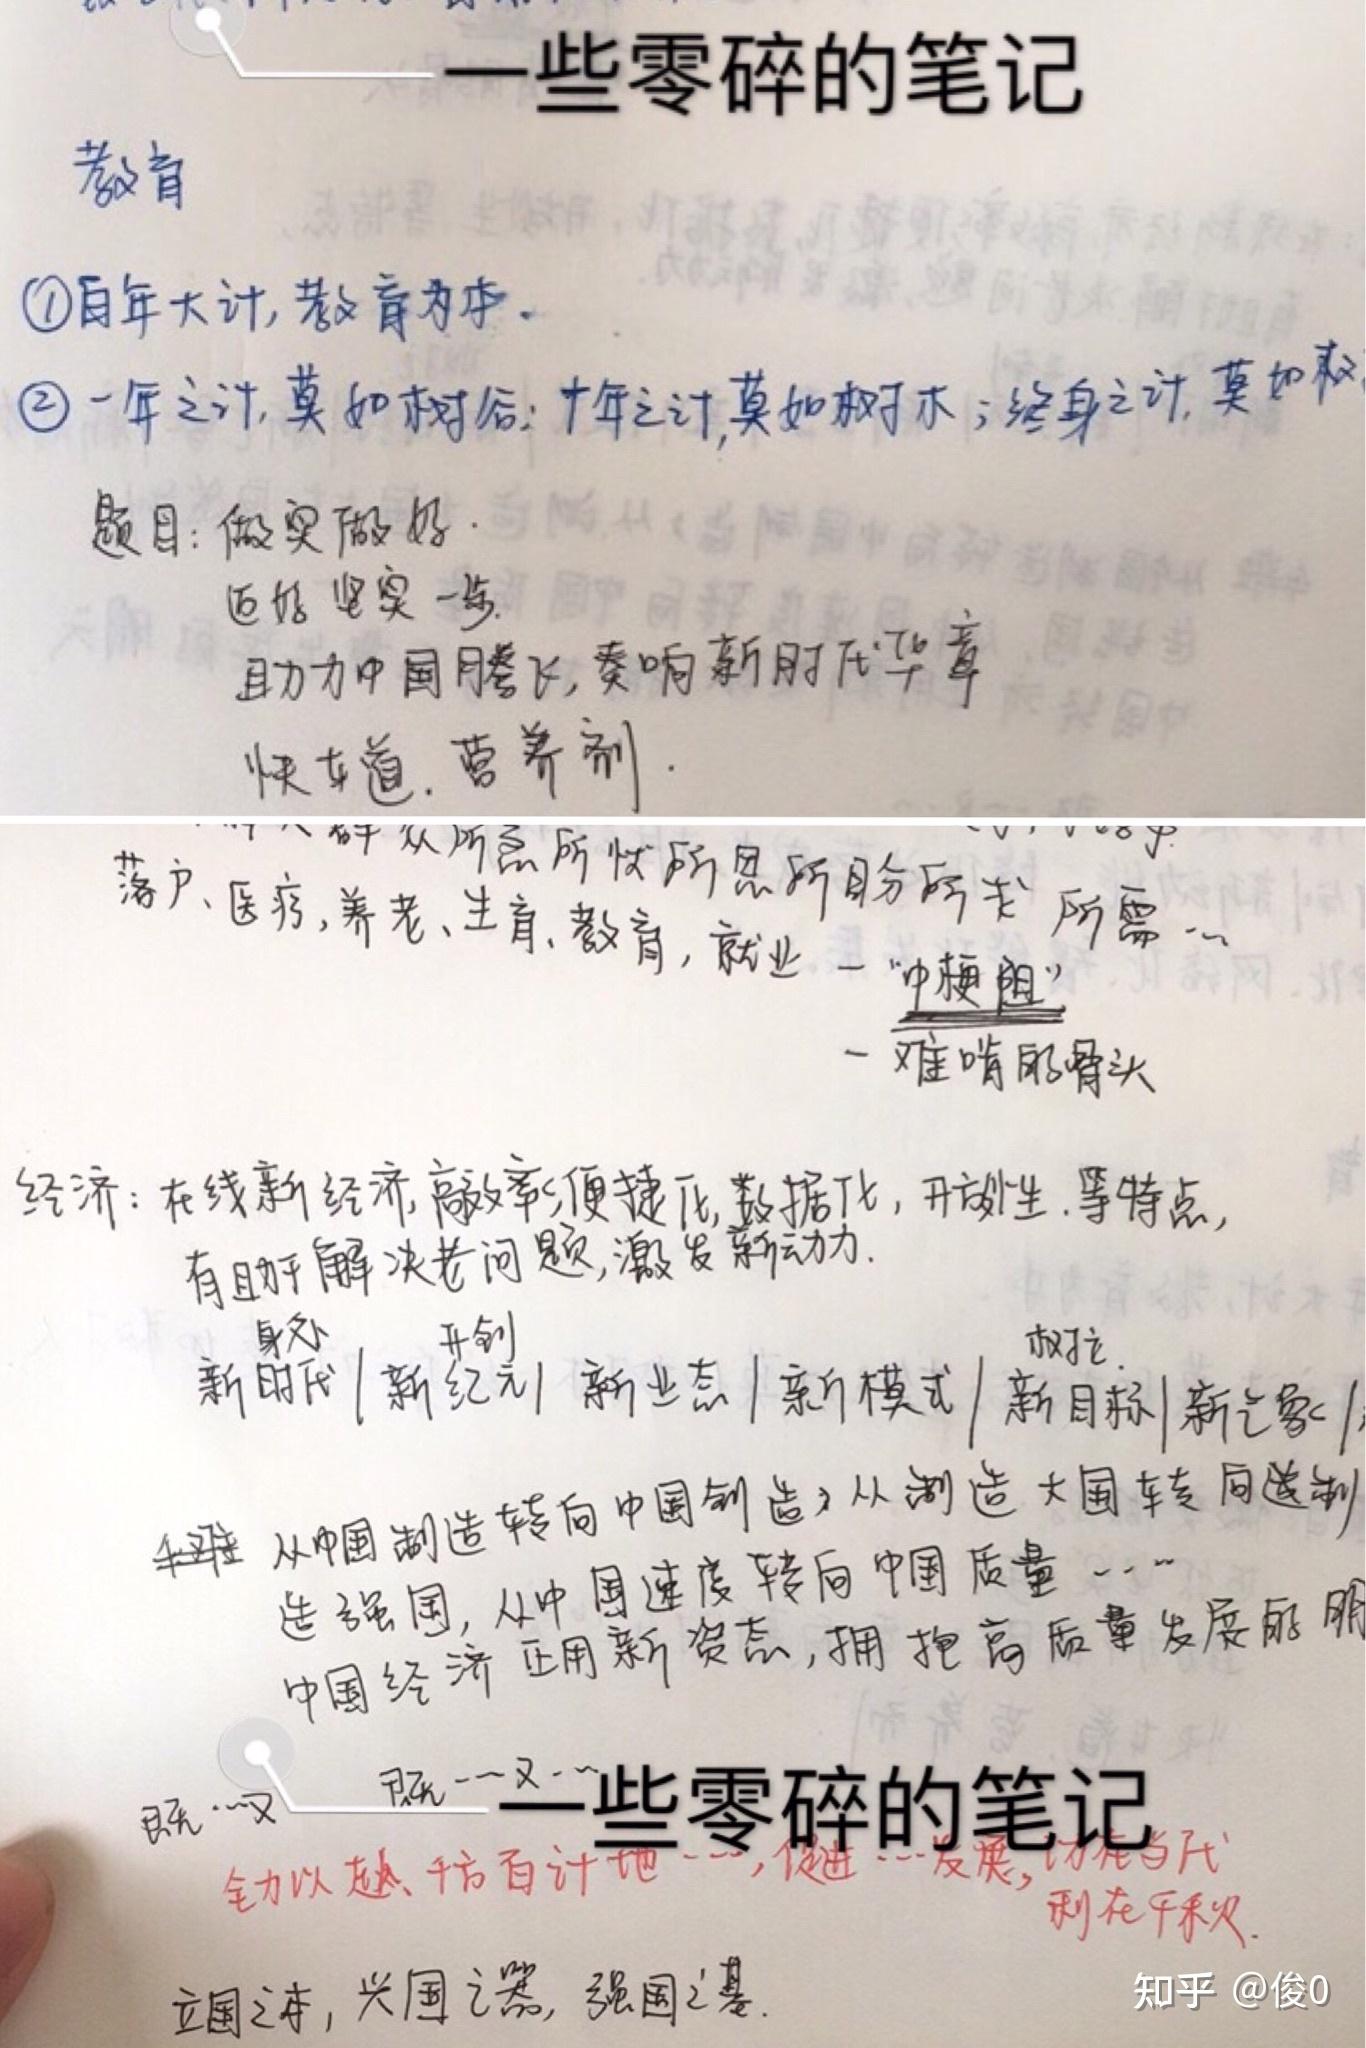 一些零碎的笔记
教育
①百年大计,教育为本.
②一年之计,莫如树谷;十年之计,莫如树木;终身之计,莫如树
题目:做实做好.
迈好坚实一步.
助力中国腾飞,奏响新时代华章
快车道.营养剂.
群众所急所忧所思所盼所求所需…
落户、医疗,养老、生育、教育,就业
-"中梗阻"
-难啃的骨头
经济:在线新经济,高效率,便捷化,数据化,开放性.等特点,
有助于解决老问题,激发新动力.
身处 开创 树立.
新时代/新纪元/新业态/新模式/新目标/新气象/
从中国制造转向中国创造,从制造大国转向制
造强国,从中国速度转向中国质量……
中国经济正用新姿态,拥抱高质量发展的明
既…又 既…又…
一些零碎的笔记
全力以赴、千方百计地…,促进…发展,功在当代
利在千秋.
立国之本,兴国之器,强国之基.
知乎 @俊0